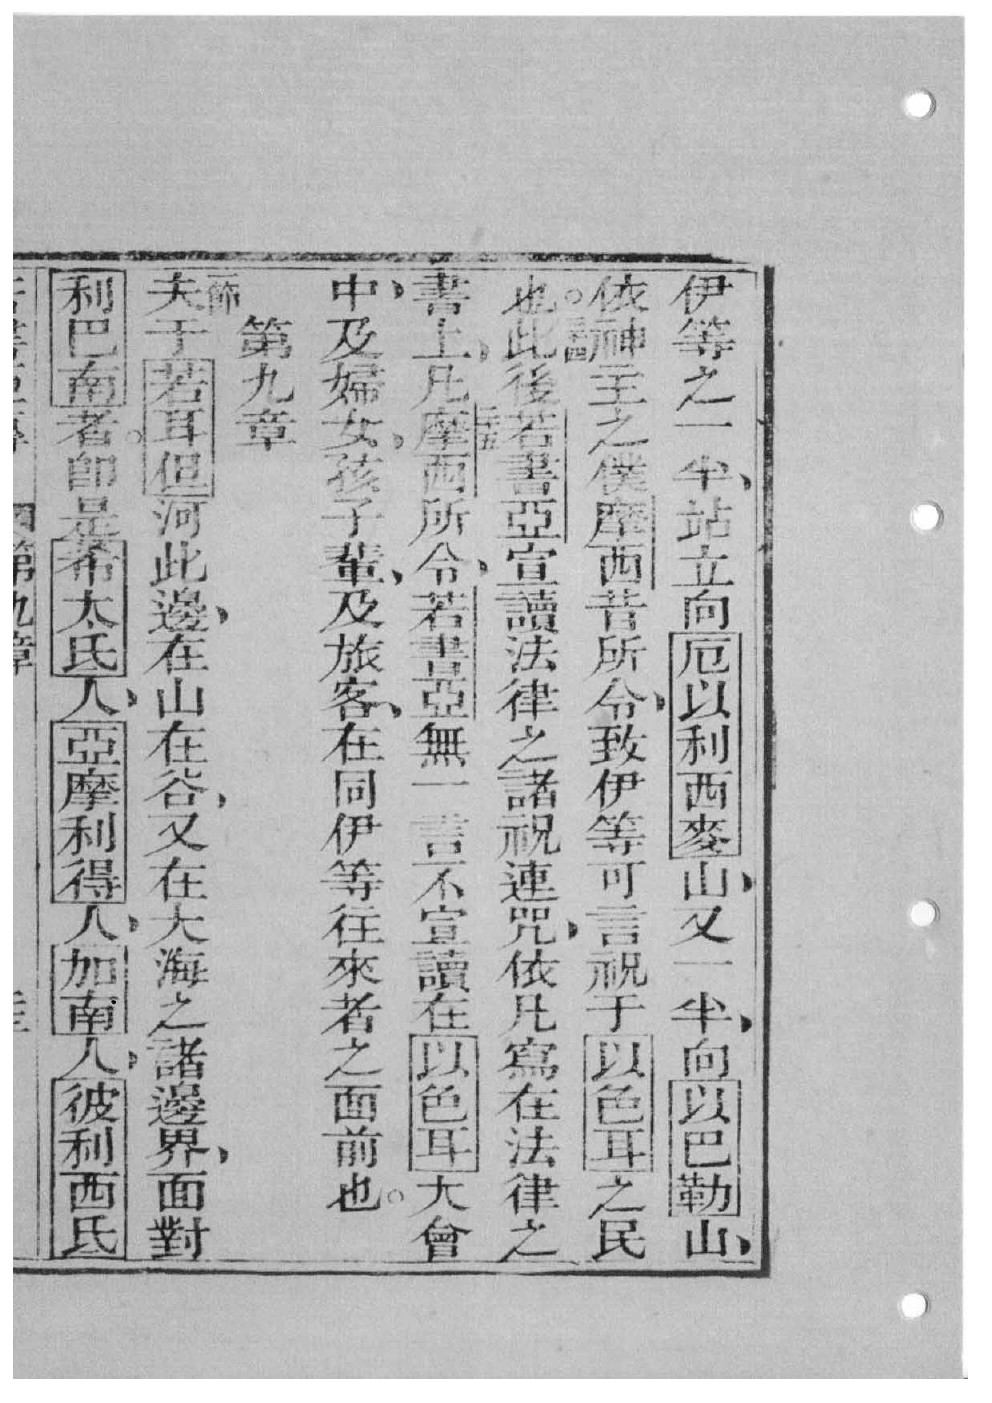 伊等之一半、站立向厄以利西麥山、又一半、向以巴勒山、
依神主之僕摩西昔所令、致伊等可言祝于以色耳之民
也。此後若書亞宣讀法律之諸祝連咒、依凡寫在法律之
書上、凡摩西所令、若書亞無一言不宣讀在以色耳大會
中、及婦女、孩子輩、及旅客、在同伊等往來者之面前也。
第九章
夫于若耳但河此邊、在山在谷、又在大海之諸邊界、面對
利巴南者。即是希太氏人、亞摩利得人、加南人、彼利西氏
第九章